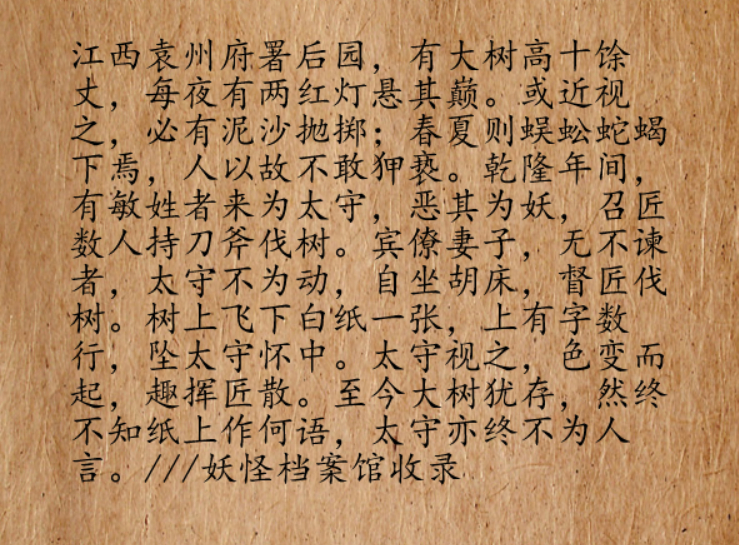 江西袁州府署后园，有大树高十馀
丈，每夜有两红灯悬其巅。或近视
之，必有泥沙抛掷；春夏则蜈蚣蛇蝎
下焉，人以故不敢狎亵。乾隆年间，
有敏姓者来为太守，恶其为妖，召匠
数人持刀斧伐树。宾僚妻子，无不谏
者，太守不为动，自坐胡床，督匠伐
树。树上飞下白纸一张，上有字数
行，坠太守怀中。太守视之，色变而
起，趣挥匠散。至今大树犹存，然终
不知纸上作何语，太守亦终不为人
言。///妖怪档案馆收录